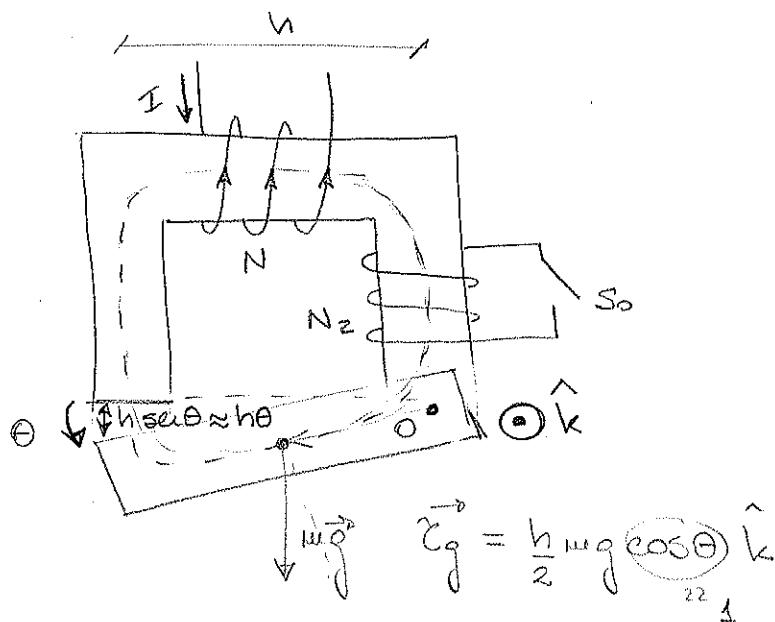 h
I
N
N2
So
θ
h sen θ ≈ hθ
O
k̂
mg⃗
τ⃗g = h/2 mg cosθ k̂
≈ 1